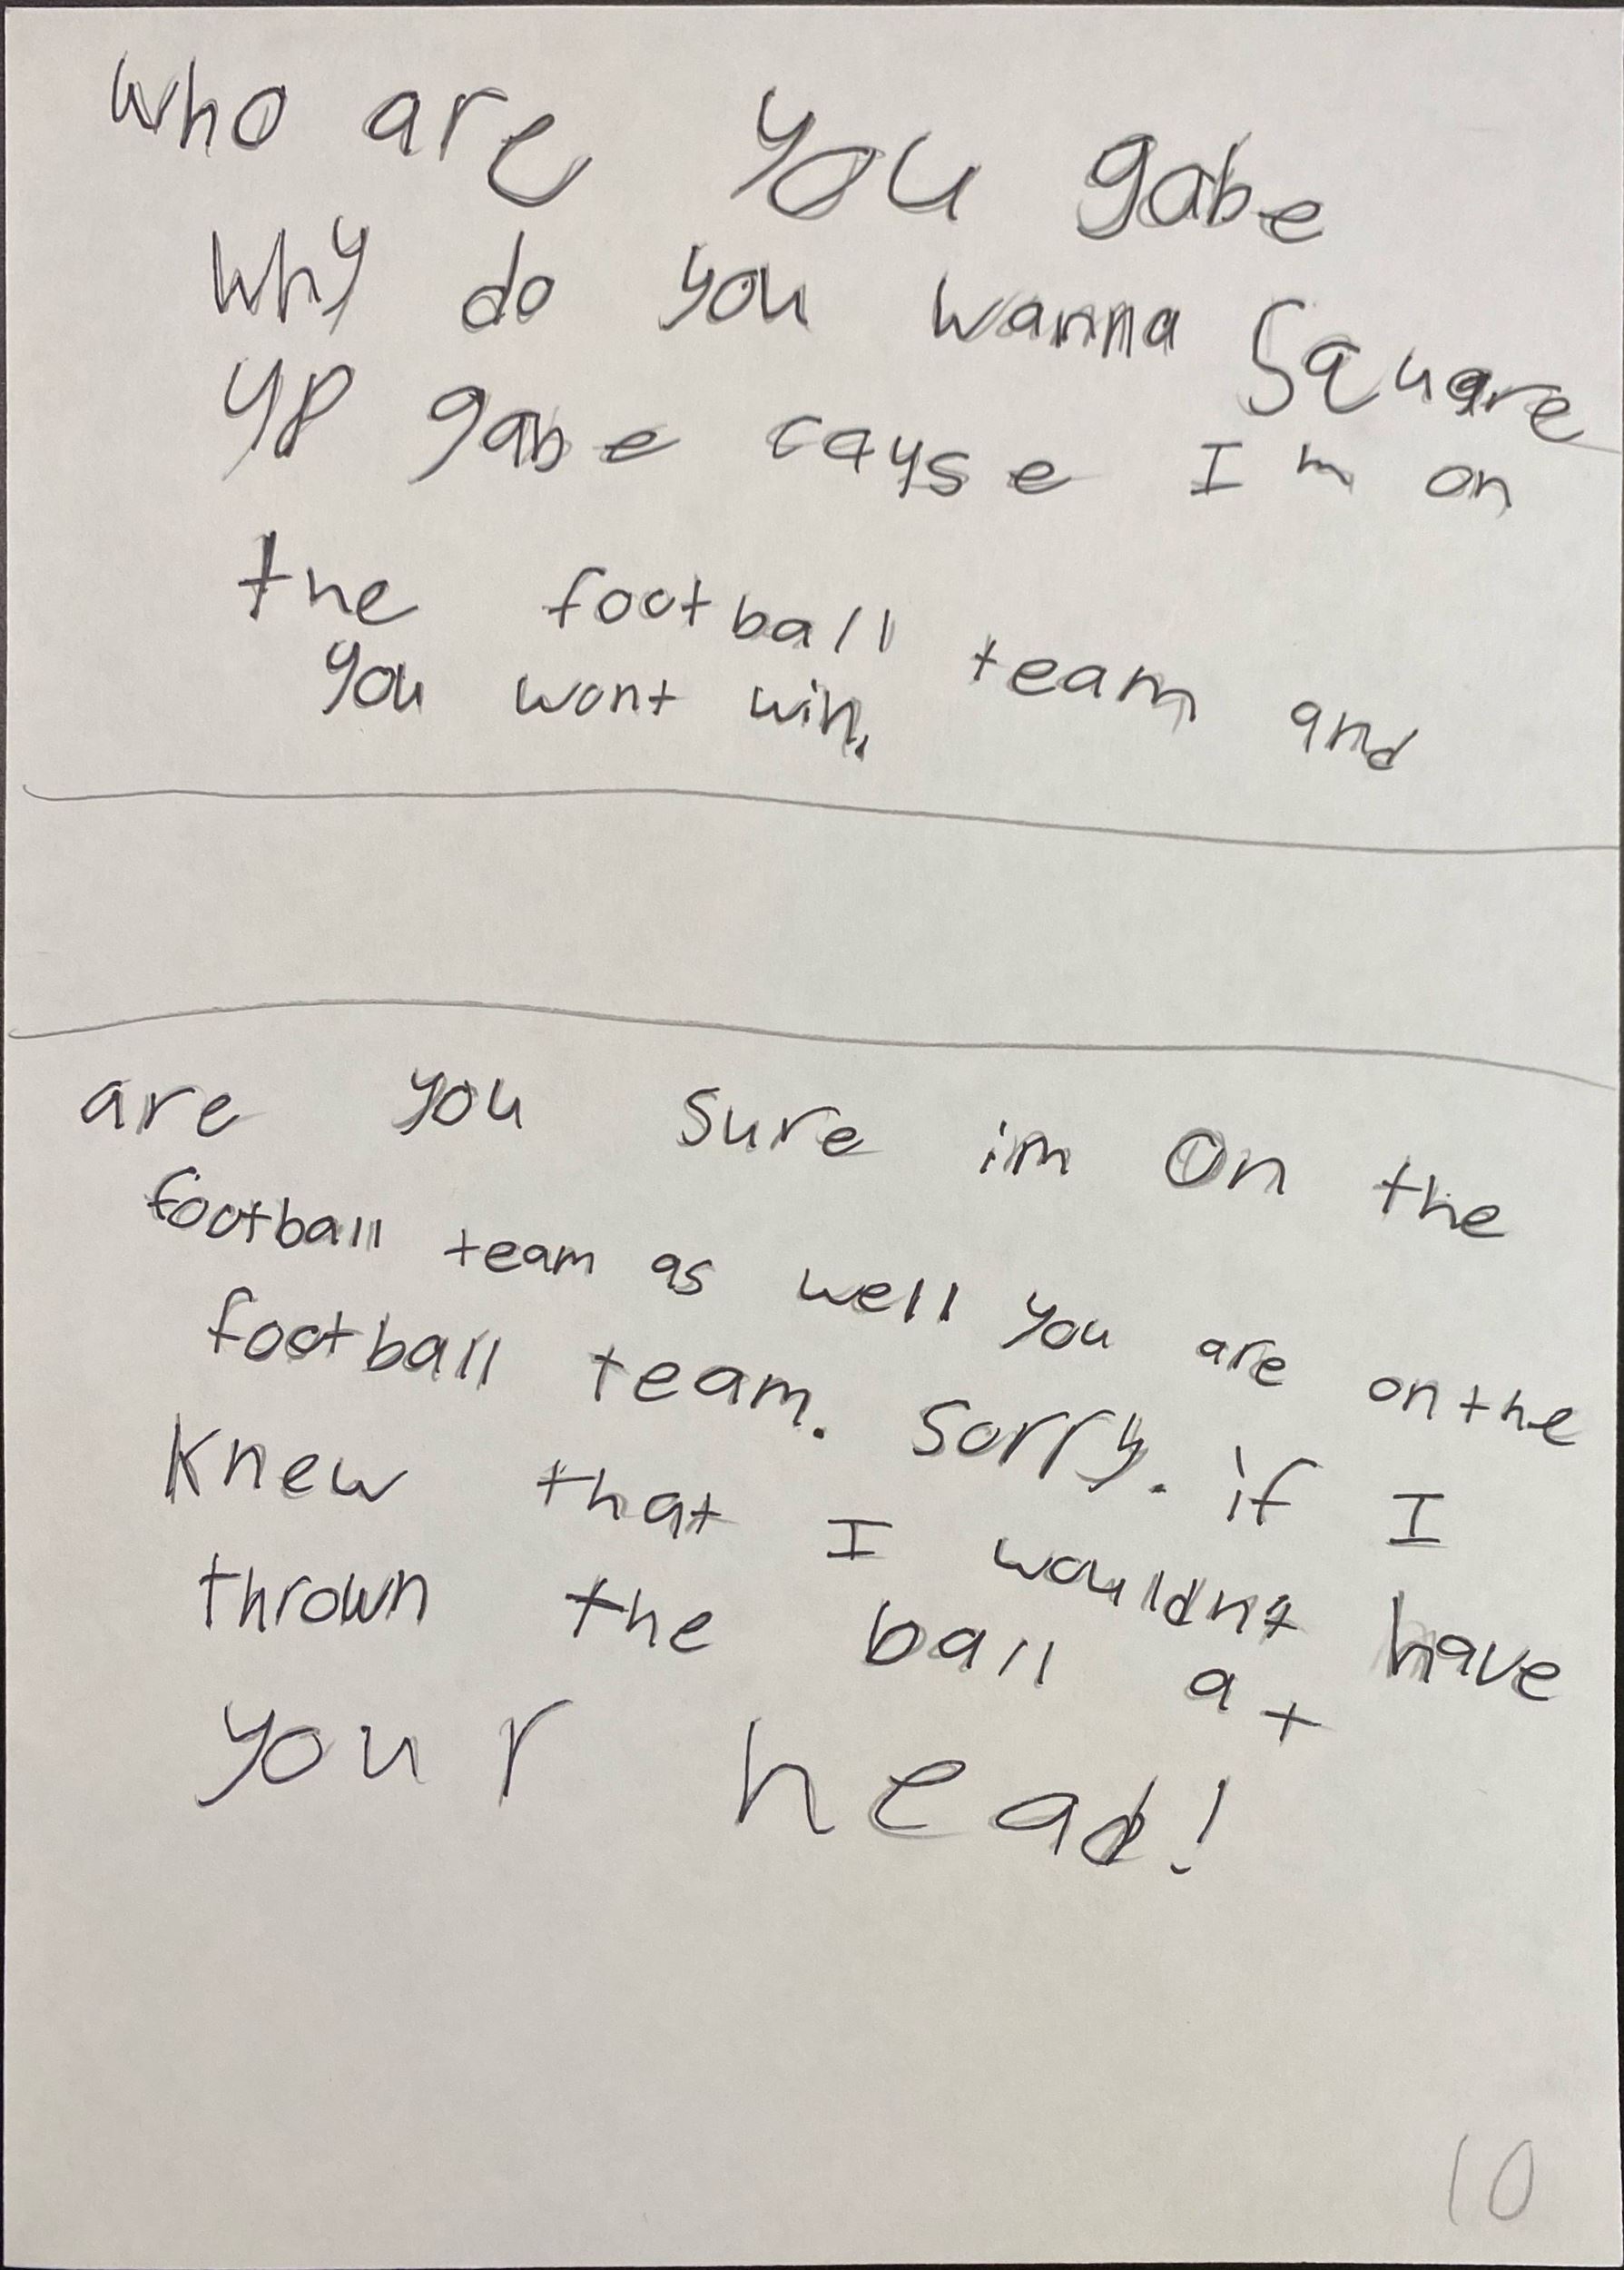 who are you gabe
Why do you wanna Square
up gabe cause I'm on
the football team and
you wont win.
are you sure im on the
football team as well you are on the
football team. Sorry. if I
knew that I wouldnt have
thrown the ball at
your head!
10